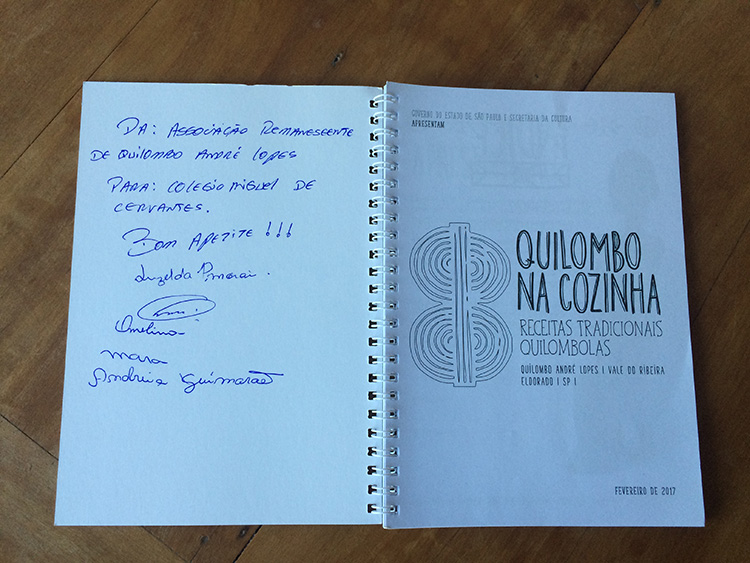 DA: ASSOCIAÇÃO REMANESCENTE
DE QUILOMBO ANDRÉ LOPES
PARA: COLEGIO MIGUEL DE
CERVANTES.
BOM APETITE !!!
mara
Andreia Guimarães
GOVERNO DO ESTADO DE SÃO PAULO E SECRETARIA DA CULTURA
APRESENTAM
QUILOMBO
NA COZINHA
RECEITAS TRADICIONAIS
QUILOMBOLAS
QUILOMBO ANDRÉ LOPES | VALE DO RIBEIRA
ELDORADO | SP |
FEVEREIRO DE 2017